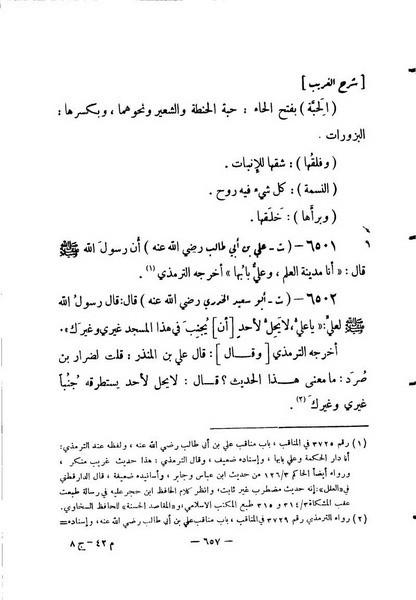 [ شرح الغريب ]
( الحَبَّة ) بفتح الحاء : حبة الحنطة والشعير ونحوهما ، وبكسرها :
البزورات .
( وفلقُها ) : شقها للإنبات .
( النسمة ) : كل شيء فيه روح .
( وبرأَها ) : خَلَقها .
٦٥٠١ – ( ت - علي بن أبي طالب رضي الله عنه ) أن رسولَ الله ﷺ
قال : « أنا مدينة العلم ، وعليٌّ بابُها » أخرجه الترمذي (١) .
٦٥٠٢ – ( ت - أبو سعيد الخدري رضي الله عنه ) قال : قال رسولُ الله
ﷺ لعليّ : « يا عليّ ، لا يحِلُّ لأحدٍ [ أن ] يُجنِبَ في هذا المسجد غيري وغيرك » .
أخرجه الترمذي [ وقال ] : قال علي بن المنذر : قلت لضرار بن
صُرَد : ما معنى هذا الحديث ؟ قال : لا يحل لأحد يستطرقه جُنُباً
غيري وغيرك (٢) .
(١) رقم ٣٧٢٥ في المناقب ، باب مناقب علي بن أبي طالب رضي الله عنه ، ولفظه عند الترمذي :
أنا دار الحكمة وعلي بابها ، وإسناده ضعيف ، وقال الترمذي : هذا حديث غريب منكر ،
ورواه أيضاً الحاكم ١٢٦/٣ من حديث ابن عباس وجابر ، وأسانيده ضعيفة ، قال الدارقطني
في «العلل» : إنه حديث مضطرب غير ثابت ، وانظر كلام الحافظ ابن حجر عليه في رسالة طبعت
عقب المشكاة ٣١٤/٣ و ٣١٥ طبع المكتب الاسلامي ، و «المقاصد الحسنة» للحافظ السخاوي .
(٢) رواه الترمذي رقم ٣٧٢٩ في المناقب ، باب مناقب علي بن أبي طالب رضي الله عنه ، وإسناده =
– ٦٥٧ –
م ٤٢ – ج ٨